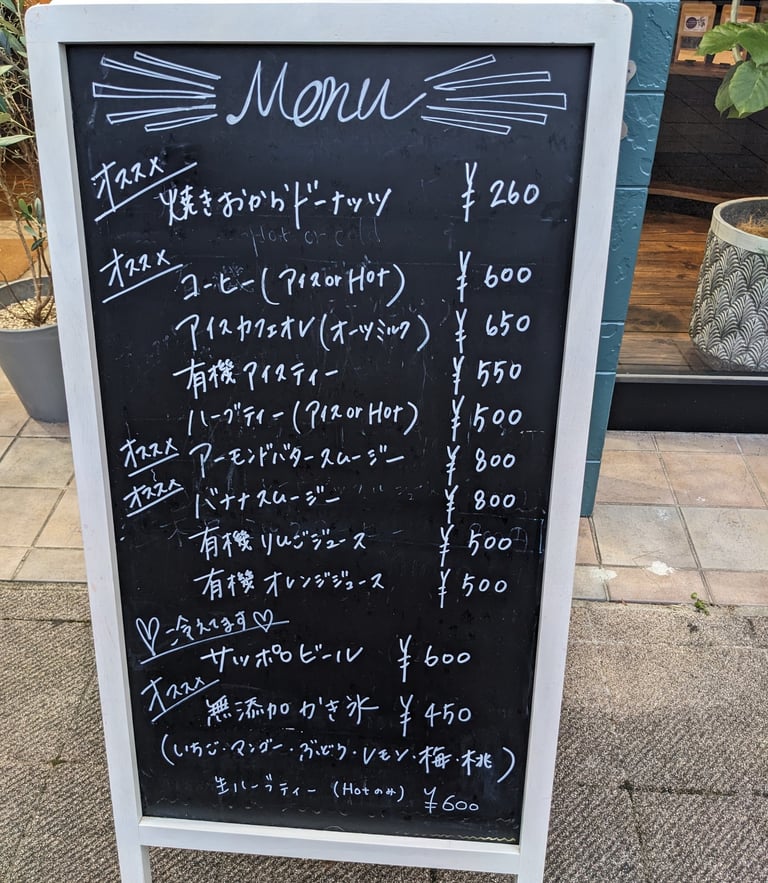 Menu
オススメ
焼きおからドーナッツ ¥260
Hot or cold
オススメ
コーヒー(アイス or Hot) ¥600
アイスカフェオレ(オーツミルク) ¥650
有機アイスティー ¥550
ハーブティー(アイス or Hot) ¥500
オススメ アーモンドバタースムージー ¥800
オススメ バナナスムージー ¥800
有機りんごジュース ¥500
有機オレンジジュース ¥500
♡冷えてます♡
サッポロビール ¥600
オススメ
無添加かき氷 ¥450
(いちご・マンゴー・ぶどう・レモン・梅・桃)
生ハーブティー (Hotのみ) ¥600